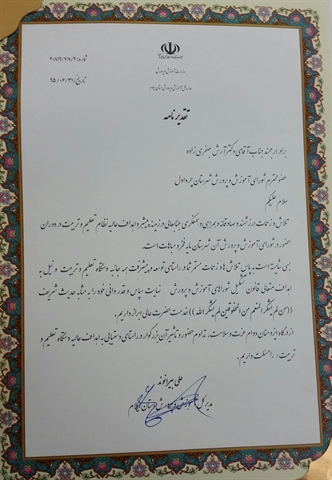 شماره: ۲۰۸۱۹/۷۸/۲
تاریخ: ۹۵/۰۴/۳۱
وزارت آموزش و پرورش
تقدیرنامه
برادر ارجمند جناب آقای دکتر آرش جعفری زاده
عضو محترم شورای آموزش و پرورش شهرستان چرداول
سلام علیکم
تلاش و زحمات ارزشمند و صادقانه و همراهی و همفکری جنابعالی در زمینه پیشبرد اهداف عالیه نظام تعلیم و تربیت در دوران
حضور در شورای آموزش و پرورش آن شهرستان مایه فخر و مباهات است.
بسی شایسته است به پاس تلاش ها و زحمات مستمر شما در راستای توسعه و پیشرفت همه جانبه دستگاه تعلیم و تربیت و نیل به
اهداف متعالی قانون تشکیل شوراهای آموزش و پرورش نهایت سپاس و قدردانی خود را به مثابه حدیث شریف
((من لم یشکر المنعم من المخلوقین لم یشکر الله)) خدمت حضرت عالی ابراز داریم.
از درگاه ایزد منان دوام عزت و سلامت، تداوم حضور و تاثیر آن بزرگوار در راستای دستیابی به اهداف عالیه دستگاه تعلیم و
تربیت را مسئلت داریم.
علی بیرانوند
مدیر کل آموزش و پرورش استان ایلام